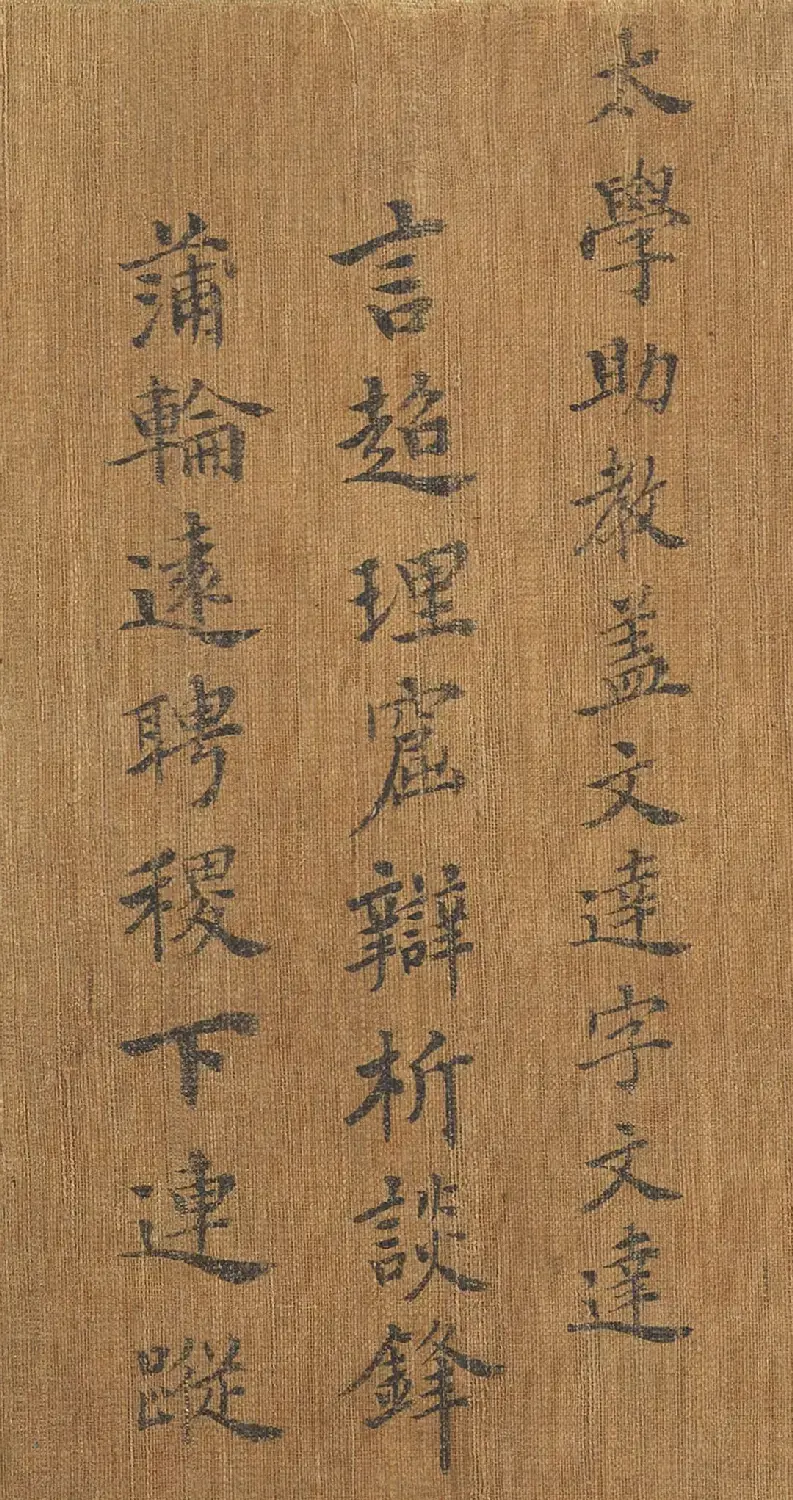 太學助教盖文達字文達
言超理窟辯析談鋒
蒲輪遠聘稷下連蹤